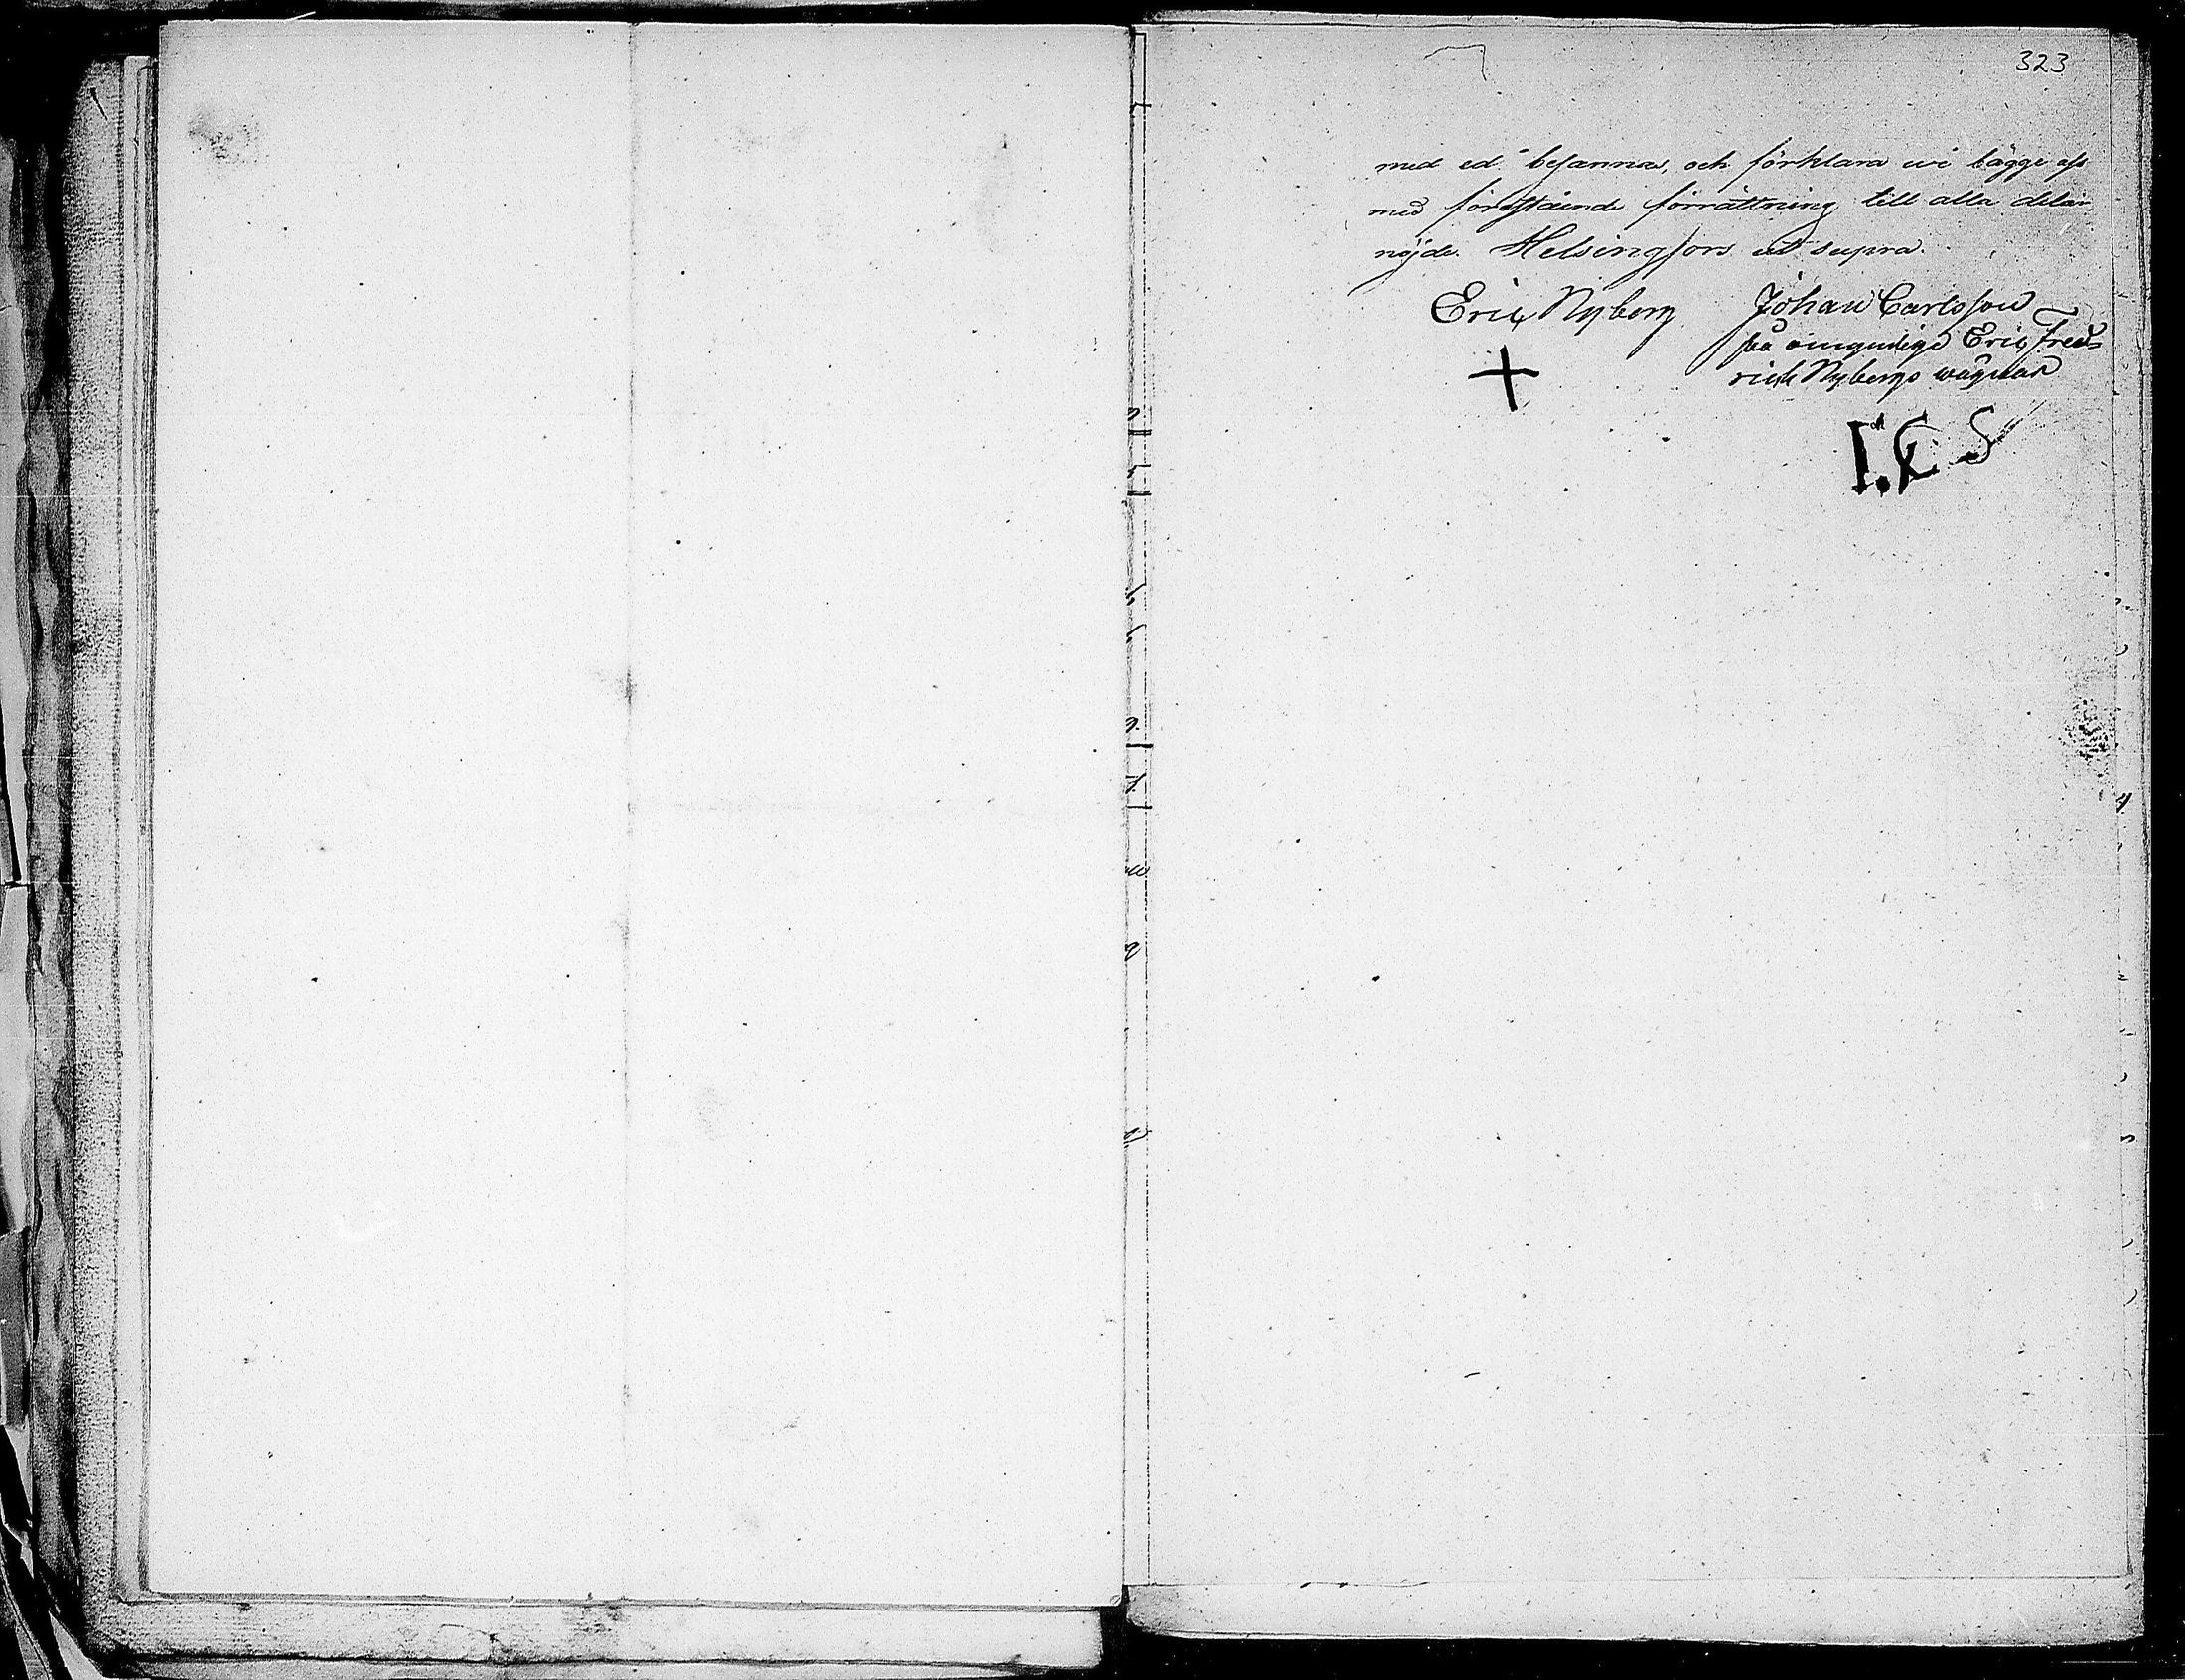 323
med ed besanna, och förklara wi bägge oss
med förestående förrättning till alla delar
nöjde. Helsingfors ut supra.
Eric Nyberg Johan Carlsson
på omyndige Eric Fred-
rick Nybergs wägnar
I. C S